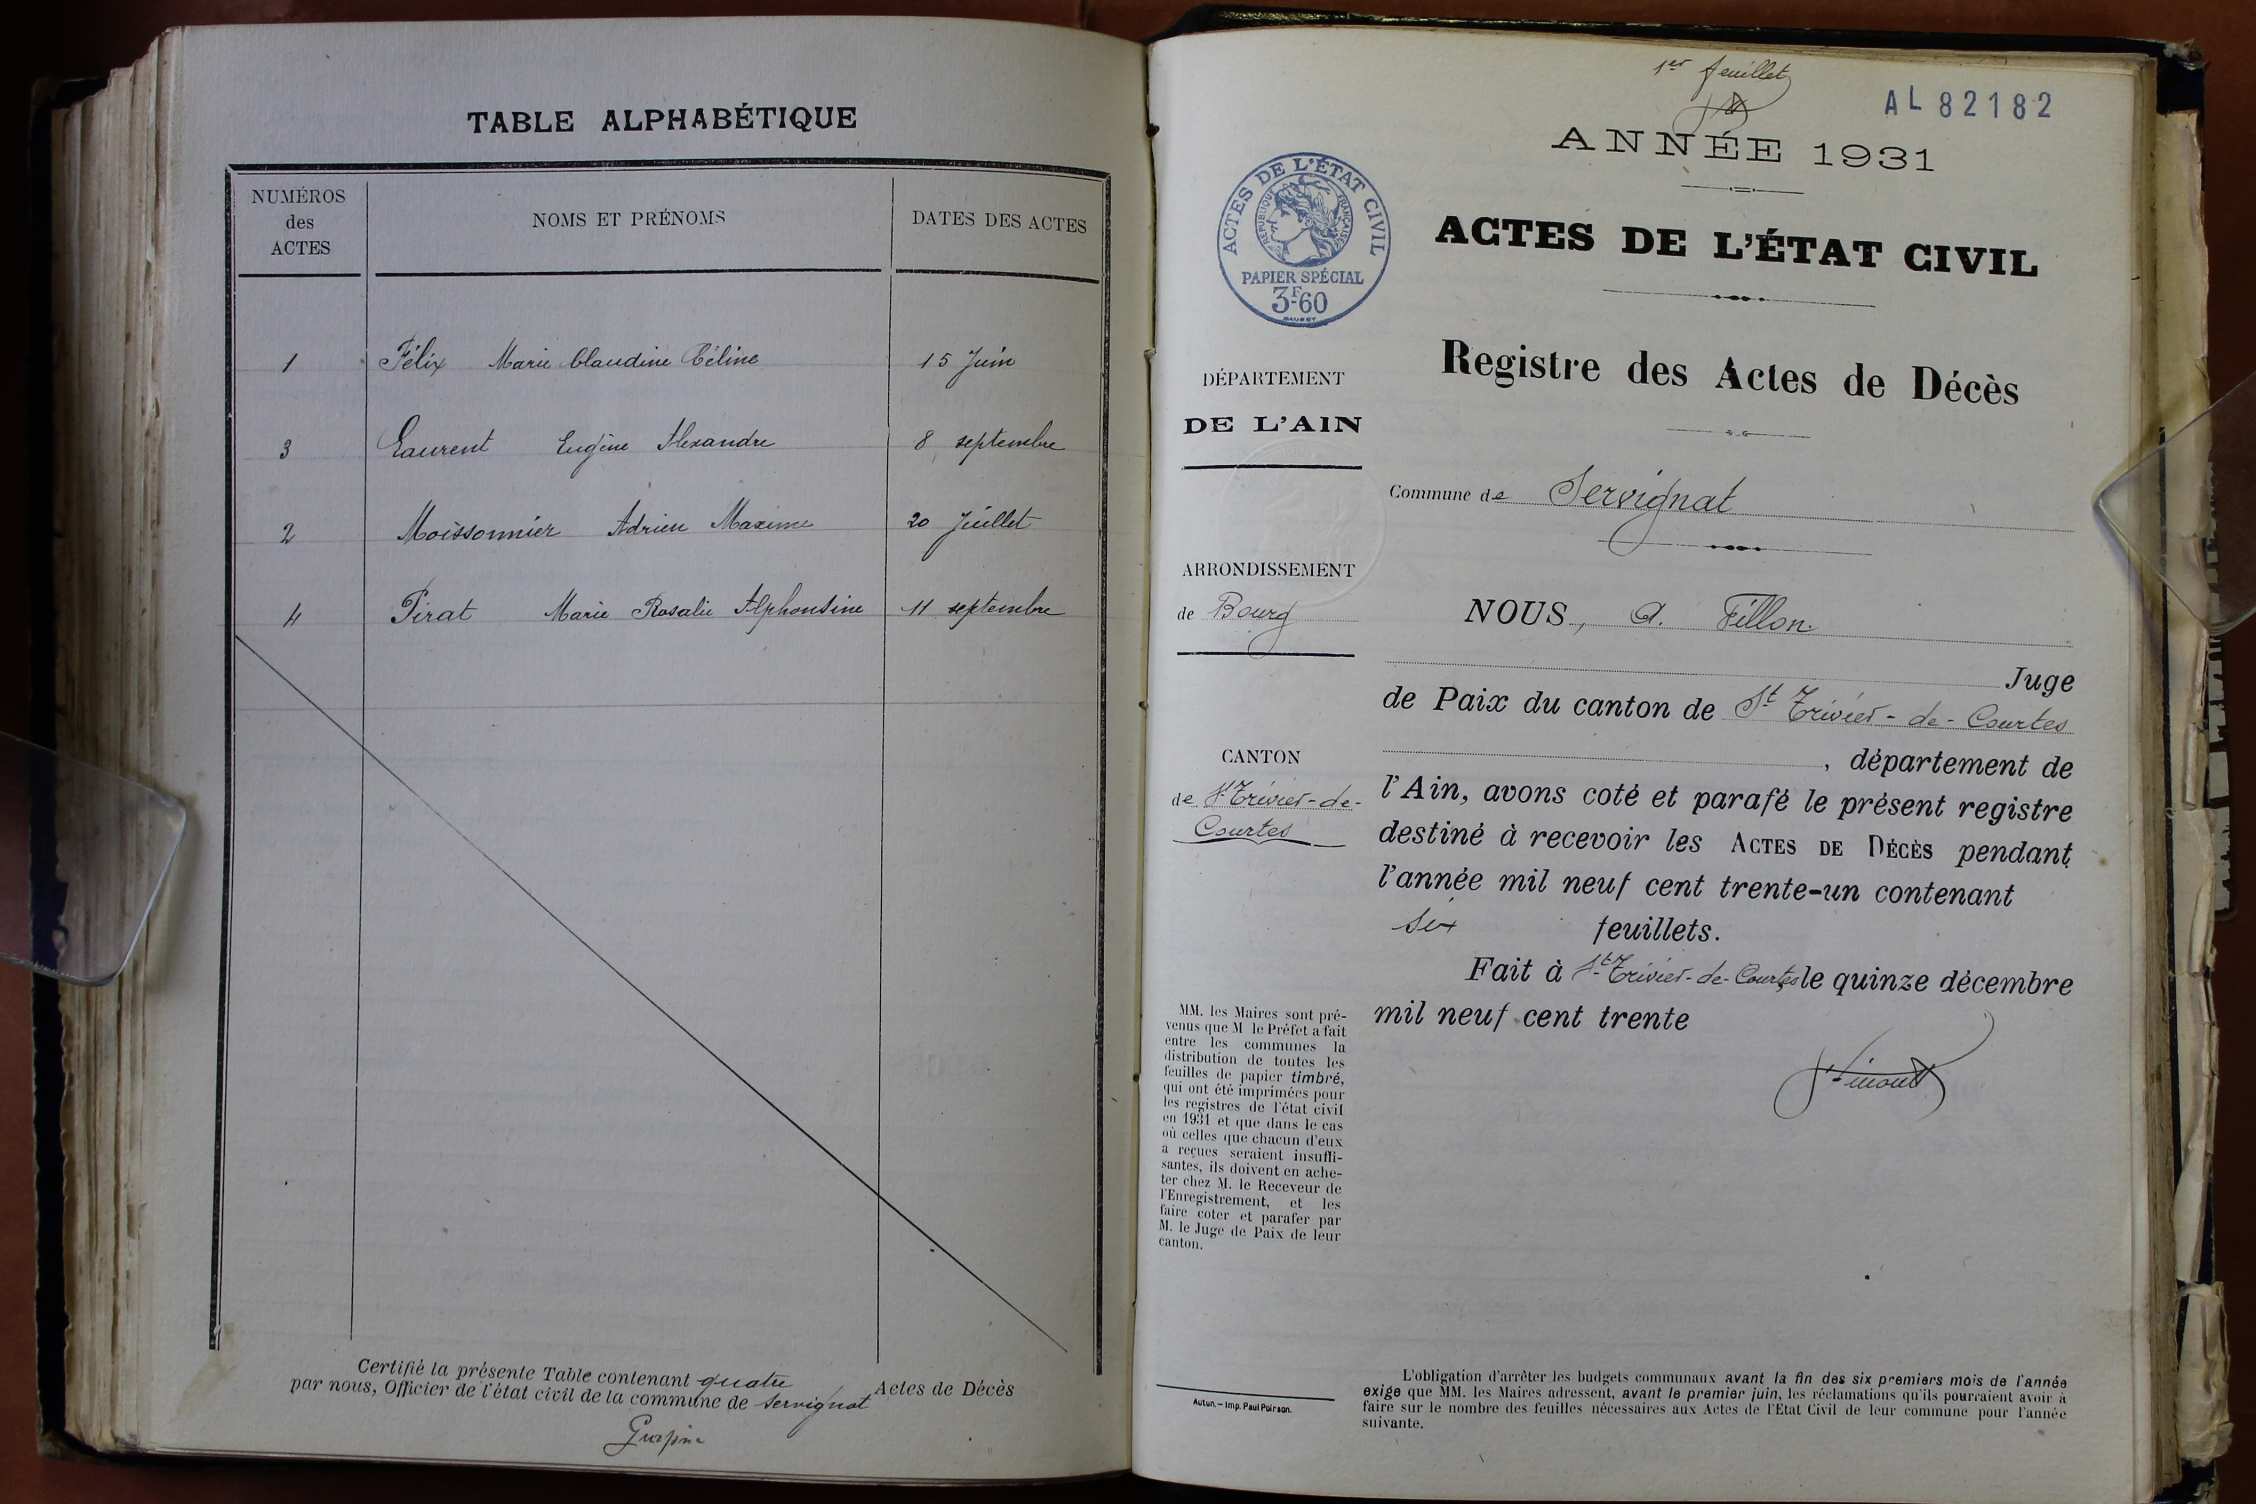 TABLE ALPHABÉTIQUE
NUMÉROS
des
ACTES
NOMS ET PRÉNOMS
DATES DES ACTES
1 Félix Marie Claudine Céline 15 Juin
3 Laurent Eugène Alexandre 8 septembre
2 Moissonnier Adrien Maxime 20 Juillet
4 Pirat Marie Rosalie Alphonsine 11 septembre
Certifié la présente Table contenant quatre Actes de Décès
par nous, Officier de l'état civil de la commune de Servignat
1er feuillet
AL 82182
ANNÉE 1931
ACTES DE L'ÉTAT CIVIL
RÉPUBLIQUE FRANÇAISE
PAPIER SPÉCIAL
3F.60
ACTES DE L'ÉTAT CIVIL
Registre des Actes de Décès
DÉPARTEMENT
DE L'AIN
Commune de Servignat
ARRONDISSEMENT
de Bourg
CANTON
de St Trivier-de-
Courtes
NOUS, A. Fillon
Juge
de Paix du canton de St Trivier-de-Courtes
, département de
l'Ain, avons coté et parafé le présent registre
destiné à recevoir les ACTES DE DÉCÈS pendant
l'année mil neuf cent trente-un contenant
six feuillets.
Fait à St Trivier-de-Courtes le quinze décembre
mil neuf cent trente
MM. les Maires sont pré-
venus que M le Préfet a fait
entre les communes la
distribution de toutes les
feuilles de papier timbré,
qui ont été imprimées pour
les registres de l'état civil
en 1931 et que dans le cas
où celles que chacun d'eux
a reçues seraient insuffi-
santes, ils doivent en ache-
ter chez M. le Receveur de
l'Enregistrement, et les
faire coter et parafer par
M. le Juge de Paix de leur
canton.
Autun. – Imp. Paul Poirson.
L'obligation d'arrêter les budgets communaux avant la fin des six premiers mois de l'année
exige que MM. les Maires adressent, avant le premier juin, les réclamations qu'ils pourraient avoir à
faire sur le nombre des feuilles nécessaires aux Actes de l'Etat Civil de leur commune pour l'année
suivante.